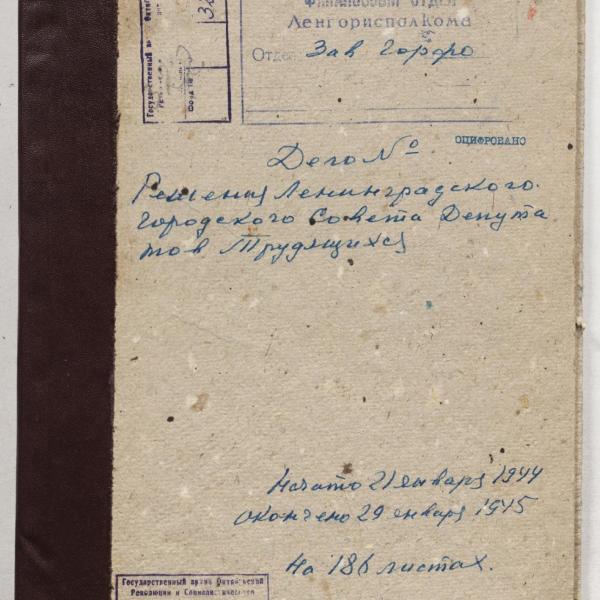 Государственный
Финансовый отдел
Ленгорисполкома
Отдел Зав Горфо
ОЦИФРОВАНО
Дело №
Решения Ленинградского
городского Совета Депута
тов Трудящихся
Начато 21 января 1944
окончено 29 января 1945
На 186 листах.
Государственный архив Октябрьской
Революции и Социалистического